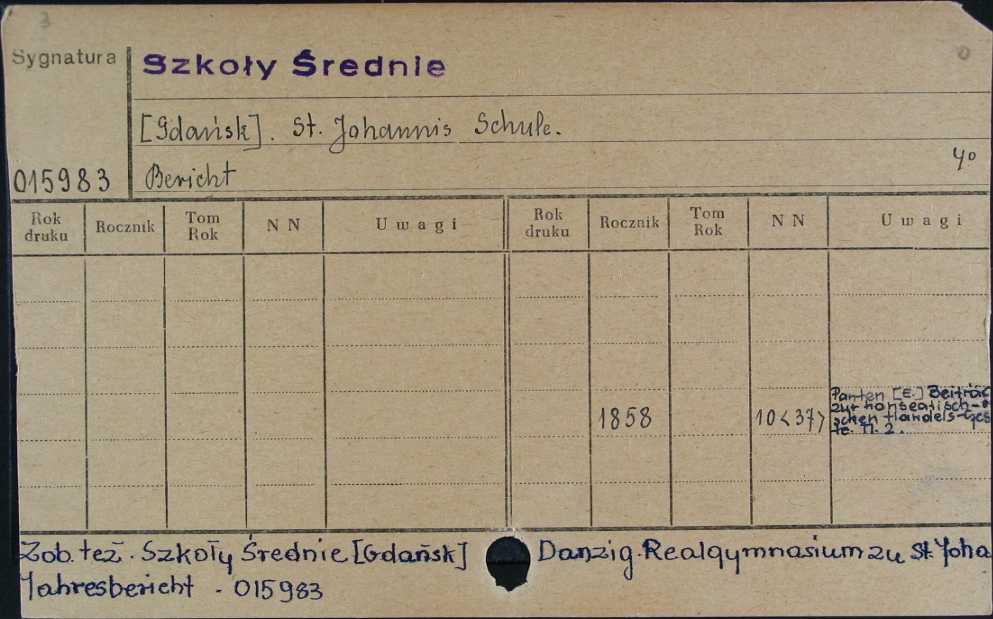 3
Sygnatura
Szkoły Średnie
[Gdańsk]. St. Johannis Schule.
4°
015983
Bericht
Rok druku Rocznik Tom Rok N N Uwagi Rok druku Rocznik Tom Rok N N Uwagi
1858 10<37>
Panten [E.] Beiträg
zur hanseatisch-
schen Handels-Ges
te. H. 2.
Zob. też. Szkoły Średnie [Gdańsk] Danzig. Realgymnasium zu St. Joha
Jahresbericht - 015983